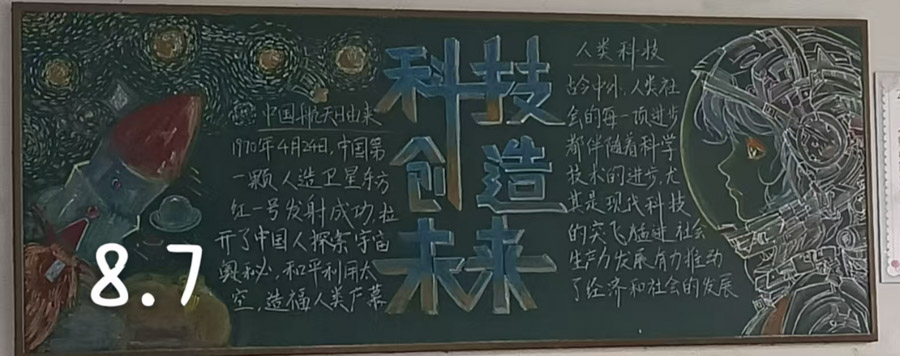 中国航天日由来
1970年4月24日,中国第
一颗人造卫星东方
红一号发射成功,拉
开了中国人探索宇宙
奥秘,和平利用太
空,造福人类序幕
科技
创造
未来
人类科技
古今中外,人类社
会的每一项进步
都伴随着科学
技术的进步,尤
其是现代科技
的突飞猛进社会
生产力发展有力推动
了经济和社会的发展
8.7